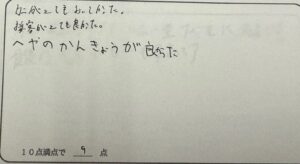 とてもおいしかった。
接客がとても良かった。
へやのかんきょうが良かった
10点満点で 9 点